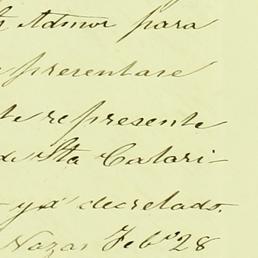 Admor para
presentase
te represente
de Sta Catari-
ya decretado.
Nazas Feb.º 28